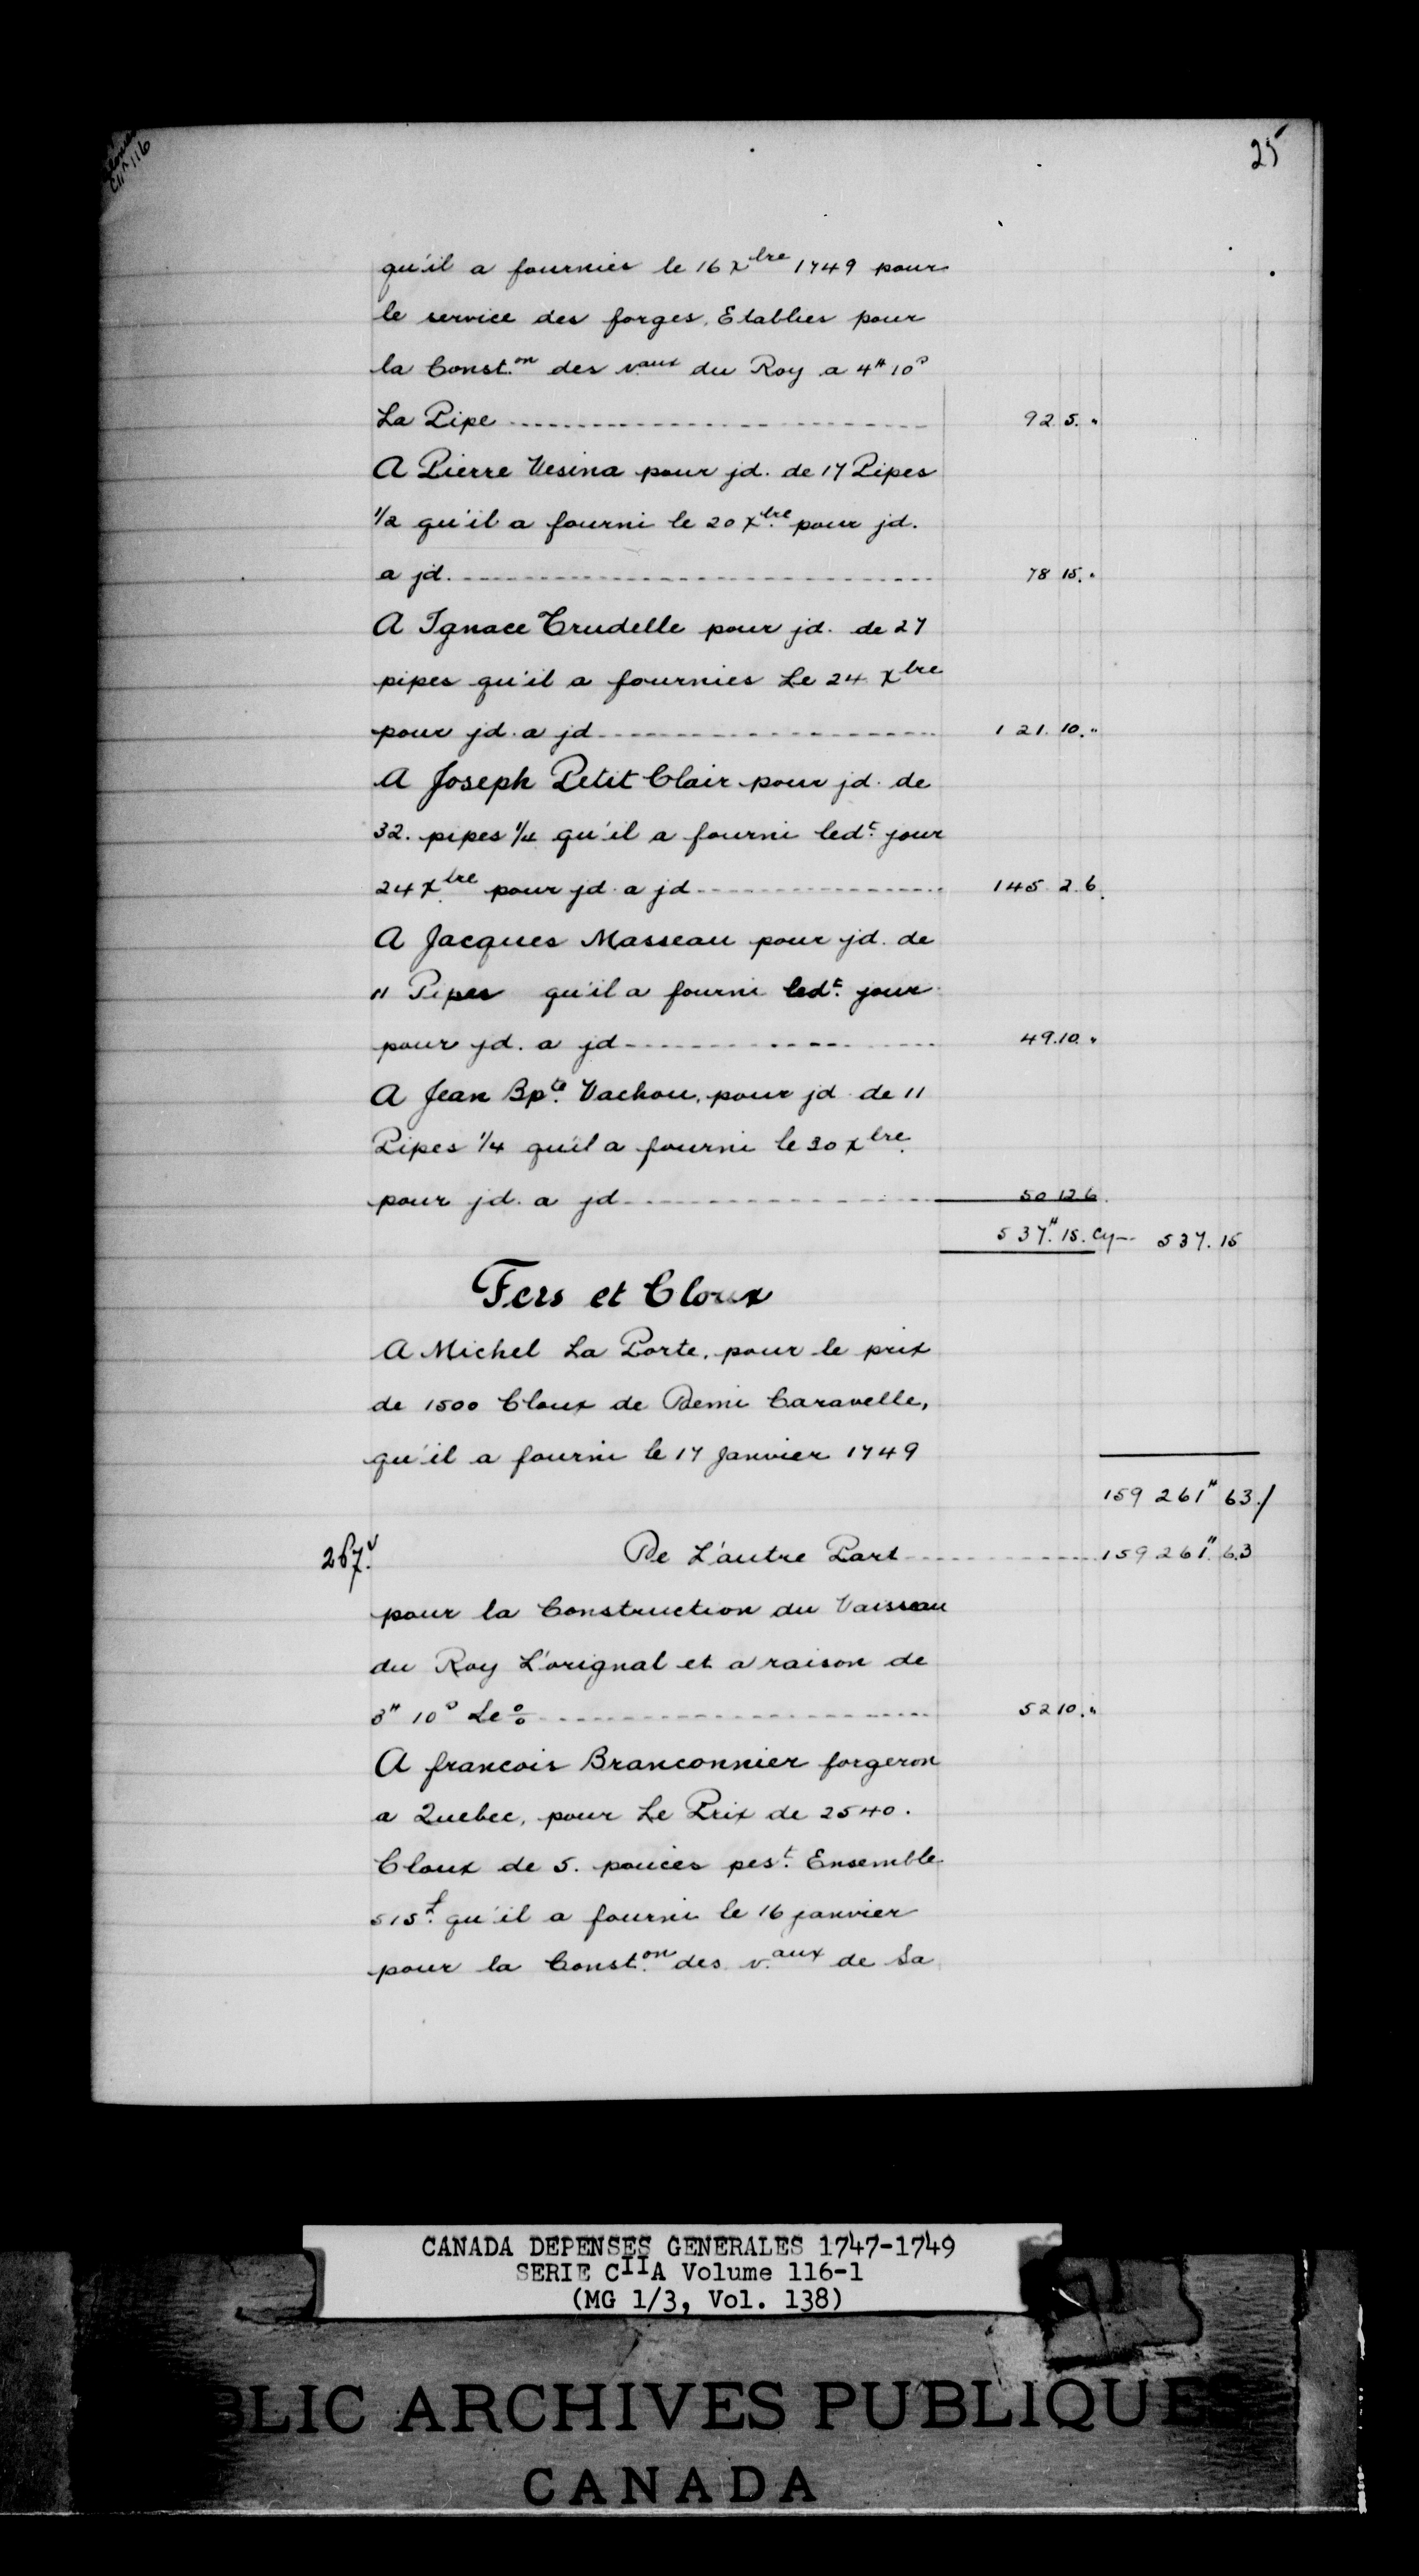 25
C11A 116
qu'il a fournies le 16 Xbre 1749 pour
le service des forges, Etablies pour
la Const.on des v.aux du Roy a 4# 10s
La Pipe ---- 92 5. "
A Pierre Vesina pour jd. de 17 Pipes
1/2 qu'il a fourni le 20 Xbre pour jd.
a jd. ---- 78 15. "
A Ignace Trudelle pour jd. de 27
pipes qu'il a fournies Le 24 Xbre
pour jd. a jd ---- 121. 10. "
A Joseph Petit Clair pour jd. de
32. pipes 1/4 qu'il a fourni led.t jour
24 Xbre pour jd a jd ---- 145 2.6.
A Jacques Masseau pour jd. de
11 Pipes qu'il a fourni led.t jour
pour jd. a jd ---- 49.10. "
A Jean Bp.te Vachou, pour jd de 11
Pipes 1/4 qu'il a fourni le 30 Xbre.
pour jd. a jd ---- 50 12 6.
537.# 15. Cy— 537. 15
Fers et Cloux
A Michel La Porte, pour le prix
de 1500 Cloux de Demi Caravelle,
qu'il a fourni le 17 Janvier 1749
159 261# 63./
267.v De L'autre Part ---- 159 261.# 6.3
pour la Construction du Vaisseau
du Roy L'orignal et a raison de
3# 10s Le % ---- 52 10. "
A francois Branconnier forgeron
a Quebec, pour Le Prix de 2540.
Cloux de 5. pouces pes.t Ensemble
515.l qu'il a fourni le 16 janvier
pour la Const.on des v.aux de Sa
CANADA DEPENSES GENERALES 1747-1749
SERIE CIIA Volume 116-1
(MG 1/3, Vol. 138)
BLIC ARCHIVES PUBLIQUES
CANADA